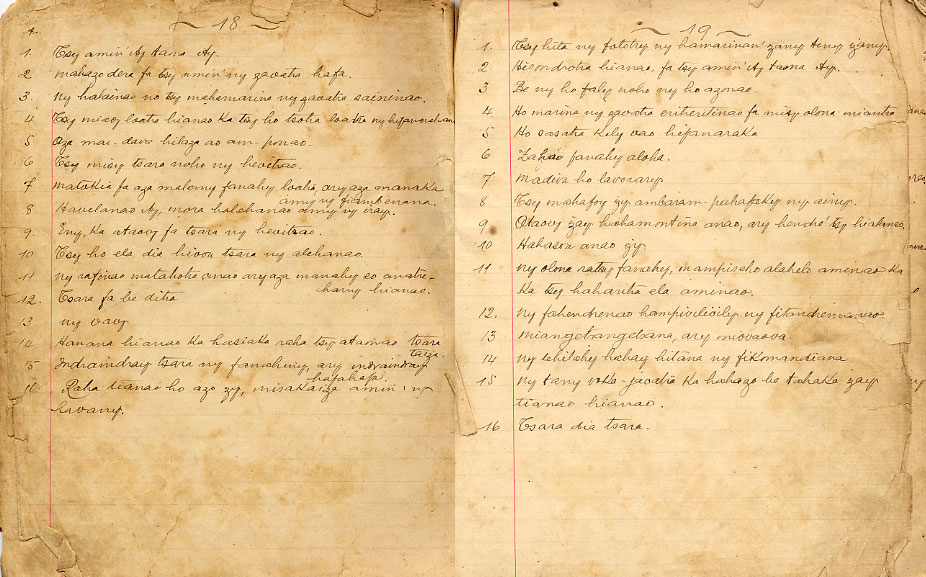 18
1. Tsy amin' ity taona ity.
2 mahazo dera fa tsy amin' ny zavatra hafa.
3. Ny halainao no tsy mahamarina ny zavatra saininao.
4 Tsy misy loatra hianao ka tsy ho tsotra loatra ny
5 Aza mai-dava hilaza ao am-ponao.
6 Tsy misy tsara noho ny hevitrao.
7 Matokia fa aza malemy fanahy loatra, ary aza manaka
amy ny
8 Havelanao ity, mora halehanao amy ny vady.
9. Eny, ka ataovy fa tsara ny hevitrao.
10 Tsy ho ela dia hivoa tsara ny alehanao.
11 ny rafinao matahotra anao ary aza manahy eo anatre-
hany hianao.
12. Tsara fa be ditra
13 ny vavy
14 Hanana hianao ka hasiaka raha tsy ataonao tsara
taiza.
15 Indraindray tsara ny fanahiny ary indraindray
hafahafa.
16 Raha tianao ho azo izy, misakaiza amin' ny
havany.
19
1. Tsy hita ny fototry ny hamarinan' zany teny zany.
2. Hiondrotra hianao, fa tsy amin' ity taona ity.
3 Be ny ho faly noho ny ho azonao.
4 Ho marina ny zavatra eritreritinao fa misy olona miantra
5 Ho sasatra kely vao hifanaraka
6 Zahao fanahy aloha.
7 Madiva ho lavorary.
8 Tsy mahafoy izy ambaram-pahafatry ny ainy.
9 Ataovy izay hahamontina anao, ary hendre tsy hialanao.
10 Hahasoa anao izy
11 ny olona ratsy fanahy, mampiseho alahelo aminao ka
ka tsy haharitra ela aminao.
12. Ny fahendrenao hampivilivily ny fitandremanao
13 miangebangebana, ary miovaova.
14 Ny lehilahy hahay hitana ny fikomandiana
15 ny tany voka-javatra ka hahazo be tahaka izay
tianao hianao.
16 Tsara dia tsara.